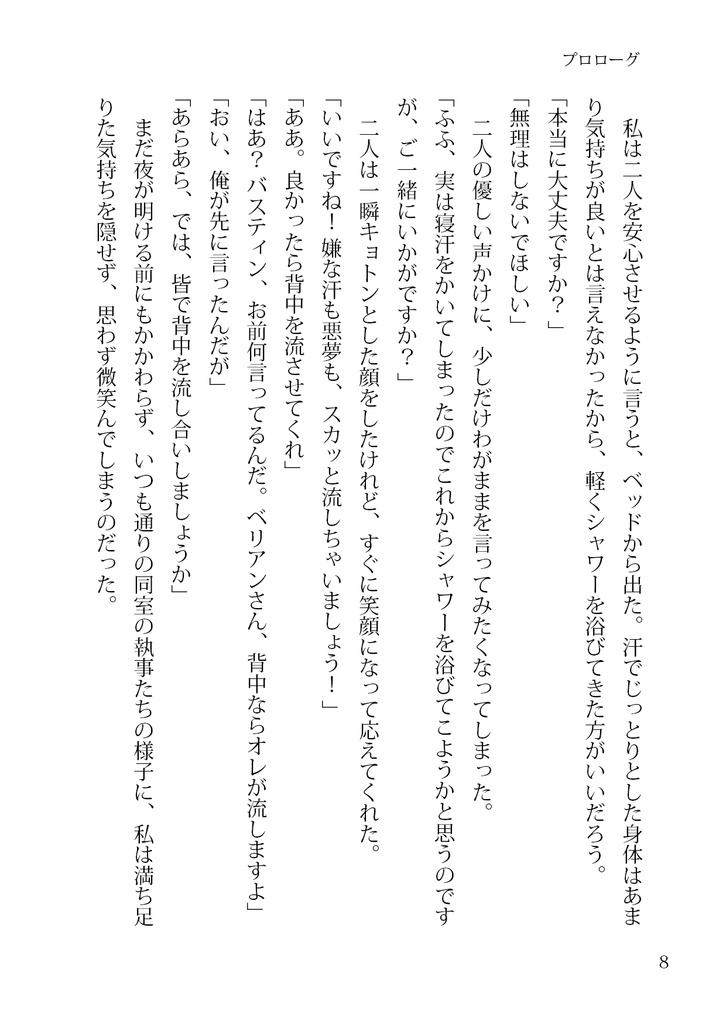 プロローグ
　私は二人を安心させるように言うと、ベッドから出た。汗でじっとりとした身体はあま
り気持ちが良いとは言えなかったから、軽くシャワーを浴びてきた方がいいだろう。
「本当に大丈夫ですか？」
「無理はしないでほしい」
　二人の優しい声かけに、少しだけわがままを言ってみたくなってしまった。
「ふふ、実は寝汗をかいてしまったのでこれからシャワーを浴びてこようかと思うのです
が、ご一緒にいかがですか？」
　二人は一瞬キョトンとした顔をしたけれど、すぐに笑顔になって応えてくれた。
「いいですね！ 嫌な汗も悪夢も、スカッと流しちゃいましょう！」
「ああ。良かったら背中を流させてくれ」
「はあ？ バスティン、お前何言ってるんだ。ベリアンさん、背中ならオレが流しますよ」
「おい、俺が先に言ったんだが」
「あらあら、では、皆で背中を流し合いしましょうか」
　まだ夜が明ける前にもかかわらず、いつも通りの同室の執事たちの様子に、私は満ち足
りた気持ちを隠せず、思わず微笑んでしまうのだった。
8